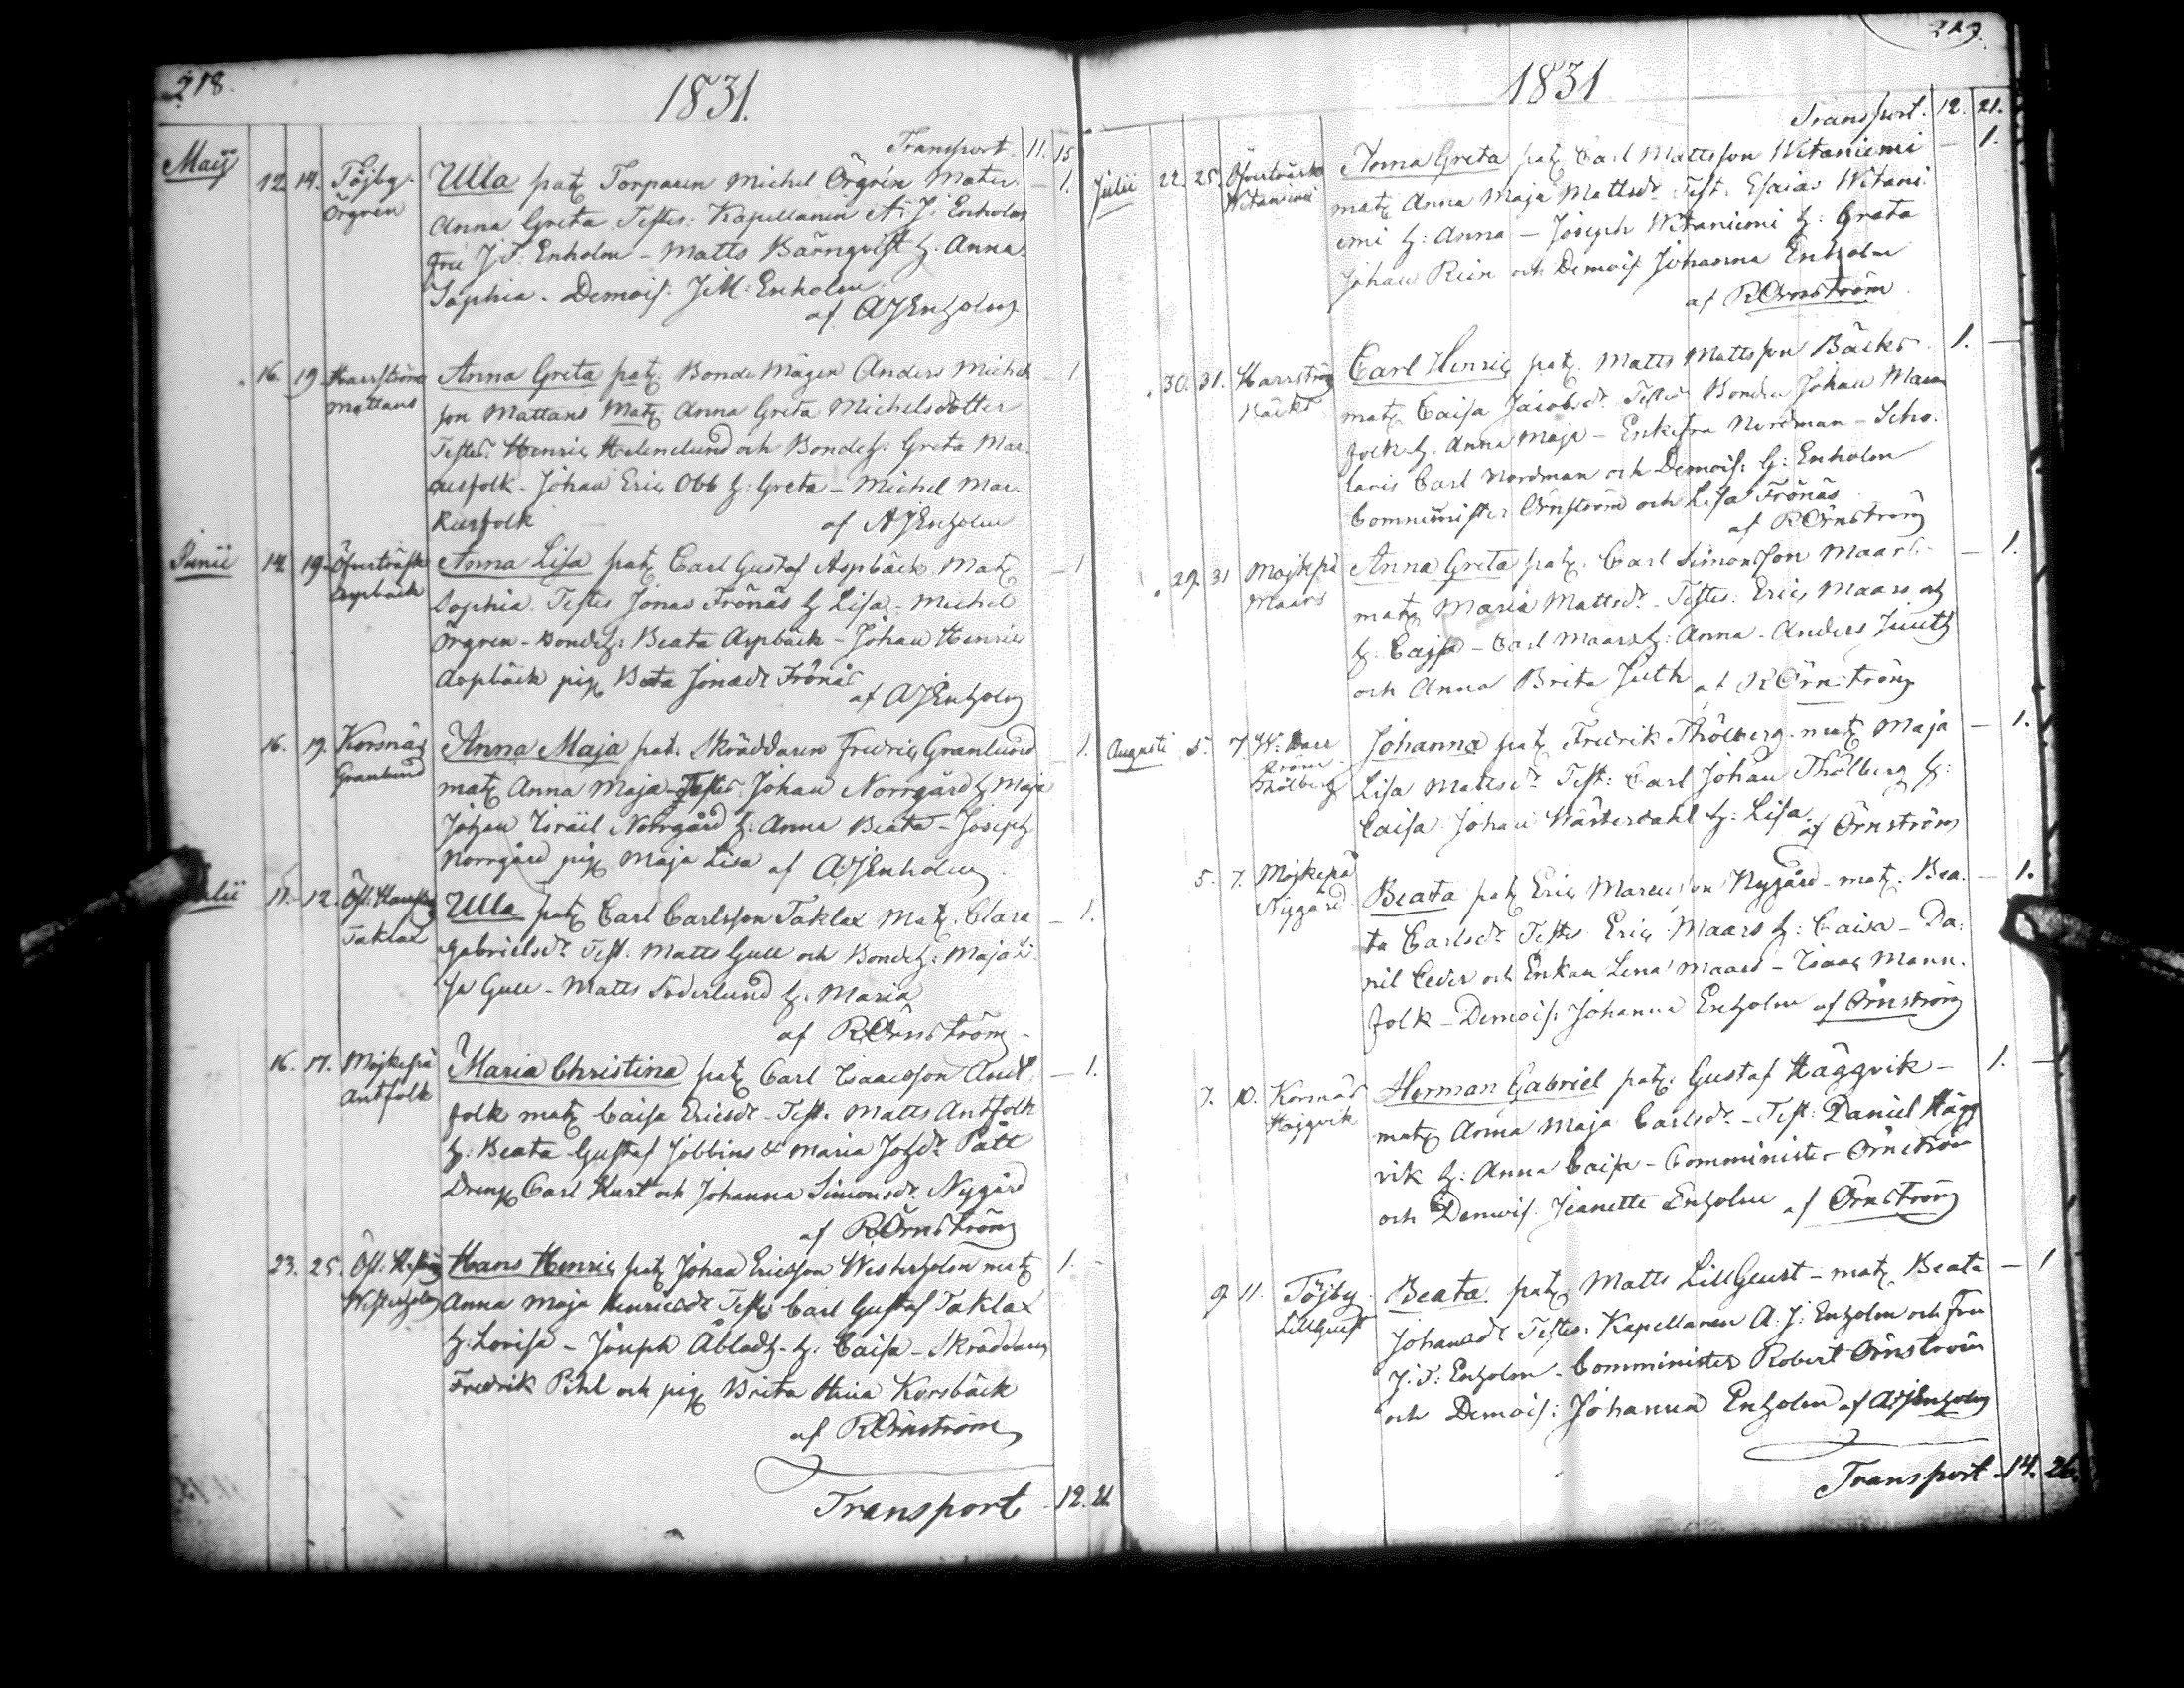 218.
1831.
Transport. 11. 15
Maij 12 14. Töjby. Ulla patr Torparen Michel Örgrén Mater. — 1.
Örgrén Anna Greta Testes: Kapellanen A. J. Enholm
Fru J. F. Enholm – Matts Bärnqvist h. Anna
Sophia – Demois: J. M: Enholm
af AJEnholm
16. 19 Harrström Anna Greta pat. Bonde Mågen Anders Michels — 1
Mattans son Mattans Mat. Anna Greta Michelsdotter
Testes: Henric Helenelund och Bondeh. Greta Mar-
cusfolk – Johan Eric Obb h: Greta – Michel Mar-
kusfolk af AJEnholm
Junii 14 19 Öfverträsk Anna Lisa pat. Carl Gustaf Aspbäck Mat. — 1
Aspbäck Sophia. Testes Jonas Frönäs h Lisa – Michel
Örgren – Bondeh: Beata Aspbäck – Johan Henric
Aspbäck pig. Beata Jonasdr Frönäs
af AJEnholm
16. 19. Korsnäs Anna Maja pat. Skräddaren Fredric Granlund — 1.
Granlund mat. Anna Maja – Testes Johan Norrgård h Maja
Johan Israël Norrgård h: Anna Beata – Joseph
Norrgård pig. Maja Lisa af AJEnholm
Julii 11. 12. Taklax Ulla pat. Carl Carlsson Taklax Mat. Clara — 1.
Gabrielsdr Test. Matts Gull och Bondeh: Maja Li-
sa Gull – Matts Söderlund h. Maria
af RÖrnström
16. 17. Mojkepä Maria Christina pat. Carl Isaacsson Ant- — 1.
Antfolk folk mat. Caisa Ericsdr – Test. Matts Antfolk
h: Beata – Gustaf Jobbins & Maria Johdr Pått
Dreng Carl Kurt och Johanna Simonsdr Nygård
af RÖrnström
23. 25. Westerholm Hans Henric pat. Johan Ericsson Westerholm mat. 1. —
Anna Maja Henricsdr Testes Carl Gustaf Taklax
h. Lovisa – Joseph h. Caisa – Skräddaren
Fredrik Pihl och pig. Brita Korsbäck
af RÖrnström
Transport – 12. 21
219.
1831
Transport. 12. 21.
Julii 22. 25. Öfverträsk Anna Greta pat. Carl Mattsson Witaniemi — 1.
Witaniemi mat. Anna Maja Mattsdr Test. Esaias Witani-
emi h: Anna – Joseph Witaniemi h: Greta
Johan Rein och Demois: Johanna Enholm
af RÖrnström
30. 31. Harrström Carl Henric pat. Matts Mattsson Bäcks 1. —
Bäcks mat. Caisa Jacobsdr Testes Bonden Johan Mann-
folk h. Anna Maja – Enkefru Nordman – Scho-
laris Carl Nordman och Demois: G: Enholm
Comminister Örnström och Lisa Frönäs
af RÖrnström
29. 31 Mojkepä Anna Greta pat. Carl Simonsson Maars — 1.
Maars mat. Maria Mattsdr – Testes: Eric Maars och
h. Cajsa – Carl Maars h: Anna – Anders Juuth
och Anna Brita Juth af RÖrnström
Augusti 5. 7. Johanna pat. Fredrik Thölberg mat. Maja — 1.
Thölberg Lisa Mattsdr Test: Carl Johan Thölberg h:
Caisa Johan Wästerdahl h: Lisa af Örnström
5. 7. Mojkepä Beata pat. Eric Marcusson Nygård – mat. Bea- — 1.
Nygård ta Carlsdr Testes Eric Maars h: Caisa – Da-
niel Ceder och Enkan Lena Maars – Isaac Mann-
folk – Demois: Johanna Enholm af Örnström
7. 10. Korsnäs Herman Gabriel pat: Gustaf Häggvik – 1. —
Häggvik mat. Anna Maja Carlsdr – Test: Daniel Hägg-
vik h: Anna Caisa – Comminister Örnström
och Demois. Jeanette Enholm af Örnström
9 11. Töjby Beata pat. Matts LillGeust – mat. Beata — 1
LillGeust Johansdr Testes. Kapellanen A. J: Enholm och Fru
J. F: Enholm – Comminister Robert Örnström
och Demois: Johanna Enholm af AJEnholm
Transport – 14. 26.